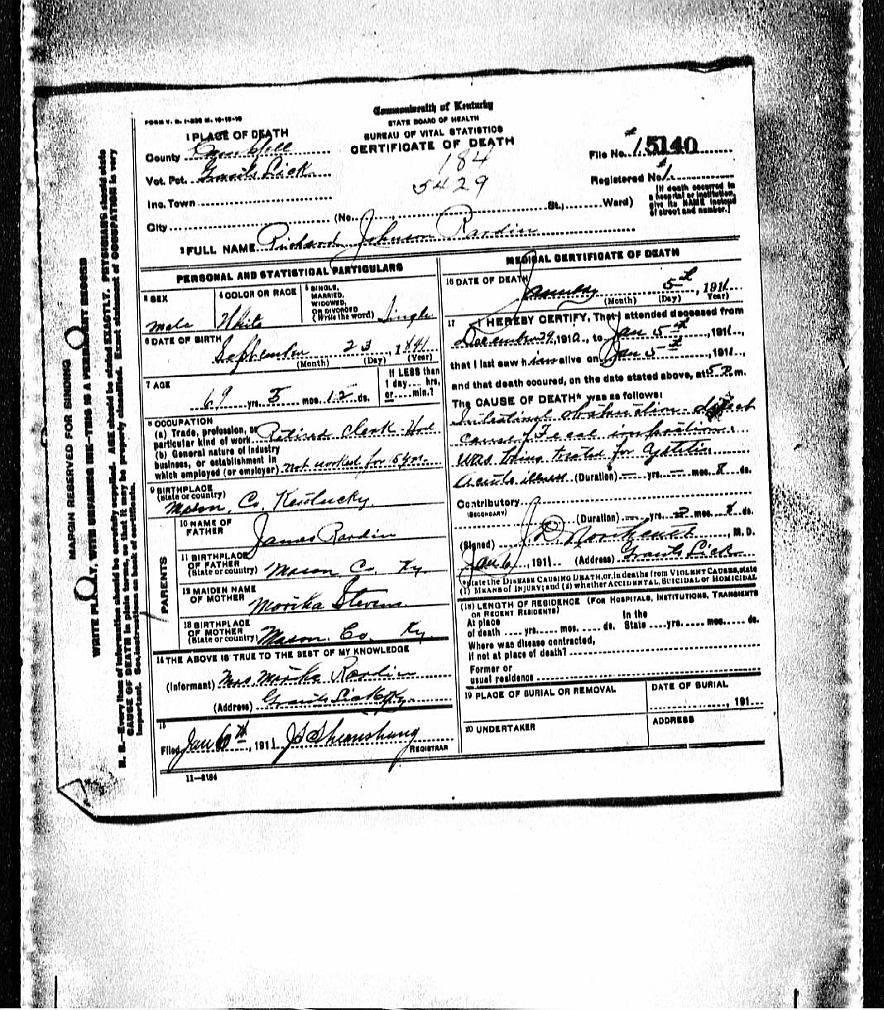 FORM V. S. 1-
Commonwealth of Kentucky
STATE BOARD OF HEALTH
BUREAU OF VITAL STATISTICS
CERTIFICATE OF DEATH
184
5429
1 PLACE OF DEATH
County Campbell
Vot. Pct. Grants Lick
Inc. Town
City (No. St.; Ward)
File No. 15140
Registered No. 1
[If death occurred in a hospital or institution, give its NAME instead of street and number.]
2 FULL NAME Richard Johnson Rardin
PERSONAL AND STATISTICAL PARTICULARS
3 SEX male
4 COLOR OR RACE White
5 SINGLE, MARRIED, WIDOWED, OR DIVORCED (Write the word) Single
6 DATE OF BIRTH
September 23, 1841
(Month) (Day) (Year)
7 AGE
69 yrs. 3 mos. 12 ds.
If LESS than 1 day ... hrs, or ... min.?
8 OCCUPATION
(a) Trade, profession, or particular kind of work Retired Clerk
(b) General nature of industry business, or establishment in which employed (or employer) not worked for 5 yrs
9 BIRTHPLACE
(State or country)
Mason, Co, Kentucky
PARENTS
10 NAME OF FATHER James Rardin
11 BIRTHPLACE OF FATHER (State or country) Mason Co Ky
12 MAIDEN NAME OF MOTHER Stevens
13 BIRTHPLACE OF MOTHER (State or country) Mason, Co. Ky
14 THE ABOVE IS TRUE TO THE BEST OF MY KNOWLEDGE
(Informant) Mrs Rardin
(Address) Grants Lick Ky
15
Filed Jan 6th, 1911
REGISTRAR
11-2184
MEDICAL CERTIFICATE OF DEATH
16 DATE OF DEATH
January 5th, 1911
(Month) (Day) Year
17 I HEREBY CERTIFY, That I attended deceased from
December 29, 1910, to Jan 5th, 1911,
that I last saw him alive on Jan 5th, 1911,
and that death occured, on the date stated above, at 5 P.m.
The CAUSE OF DEATH* was as follows:
Intestinal obstruction direct
cause Fecal impaction
was being treated for Cystitis
Acute illness (Duration) yrs. mos. 8 ds.
Contributory
(SECONDARY)
(Duration) yrs. mos. 8 ds.
(Signed) M.D.
Jan 6, 1911 (Address) Grants Lick
*State the DISEASE CAUSING DEATH, or, in deaths from VIOLENT CAUSES, state
(1) MEANS OF INJURY; and (2) whether ACCIDENTAL, SUICIDAL or HOMICIDAL
(18) LENGTH OF RESIDENCE (FOR HOSPITALS, INSTITUTIONS, TRANSIENTS OR RECENT RESIDENTS)
At place of death .... yrs. .... mos. .... ds. In the State .... yrs. .... mos. .... ds.
Where was disease contracted, if not at place of death?
Former or usual residence
19 PLACE OF BURIAL OR REMOVAL
DATE OF BURIAL
, 191
20 UNDERTAKER
ADDRESS
MARGIN RESERVED FOR BINDING
WRITE PLAINLY, WITH UNFADING INK—THIS IS A PERMANENT RECORD
N. B.—Every item of information should be carefully supplied. AGE should be stated EXACTLY. PHYSICIANS should state
CAUSE OF DEATH in plain terms, so that it may be properly classified. Exact statement of OCCUPATION is very
important. See instructions on back of certificate.